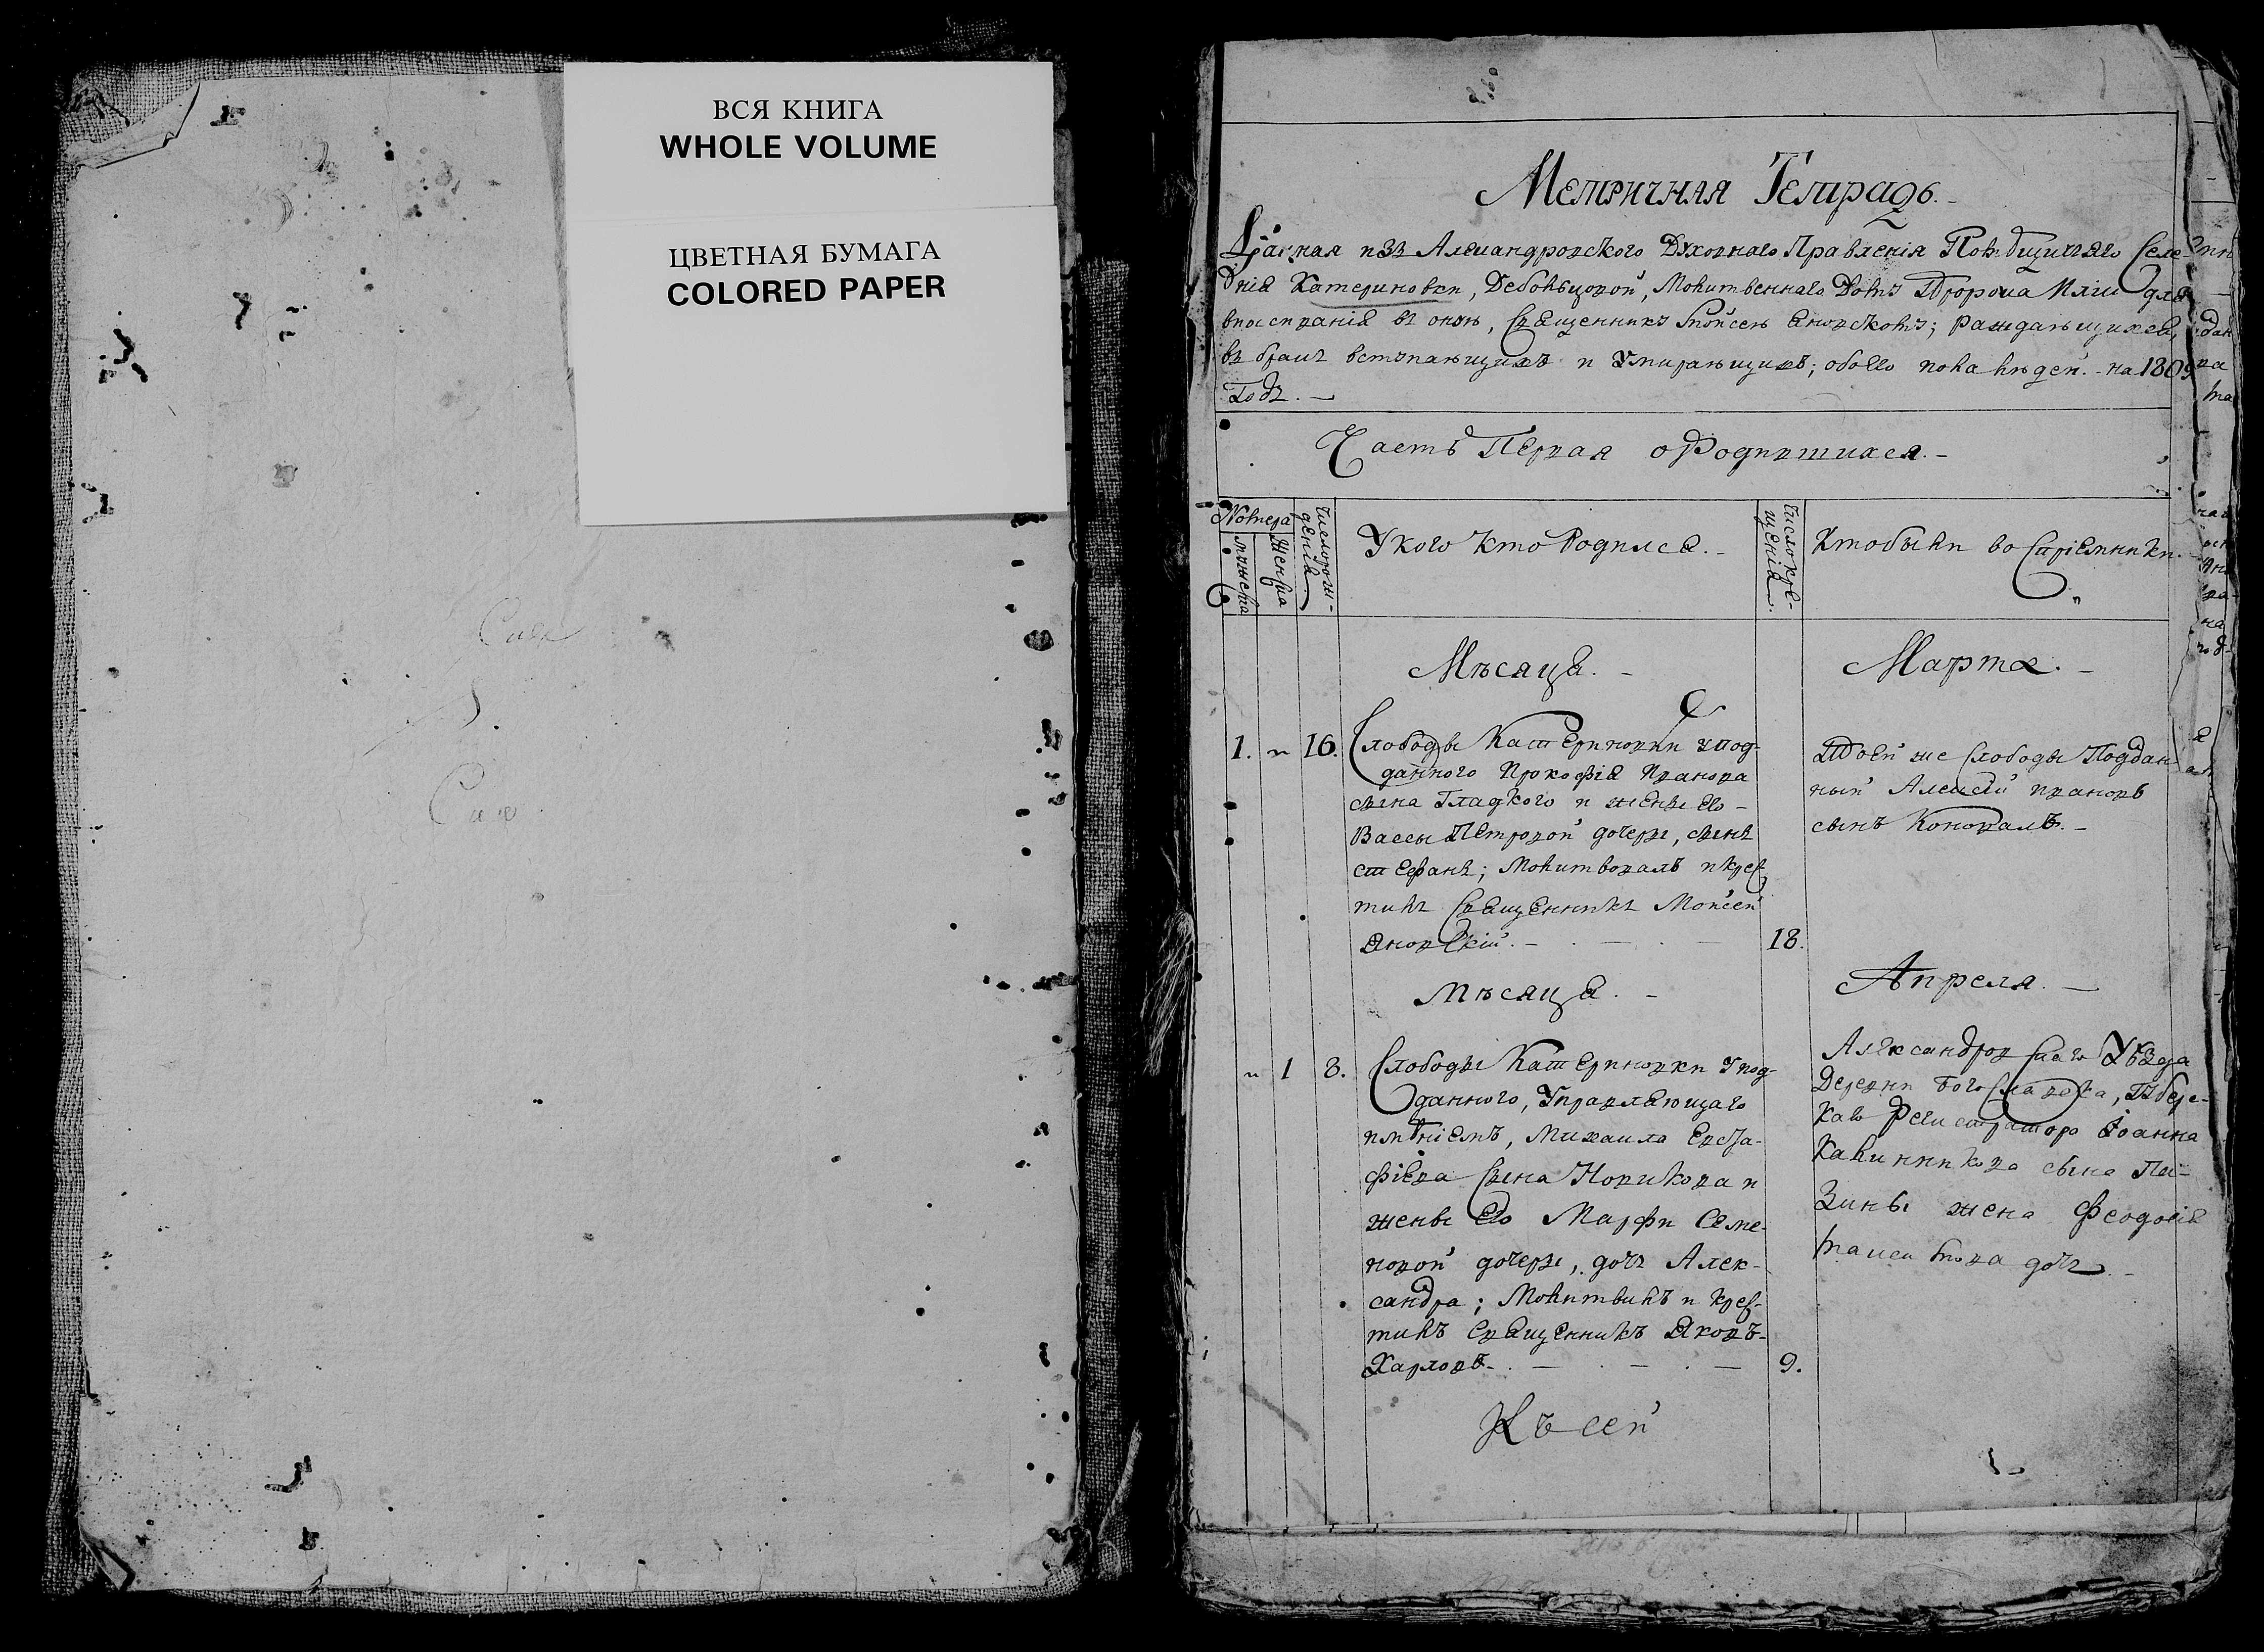 ВСЯ КНИГА
WHOLE VOLUME
ЦВЕТНАЯ БУМАГА
COLORED PAPER
Метричная Тетрадь.
Данная изъ Александровского Духовнаго Правленія Помѣщичяго Селе-
нія Катериновки, Молитвеннаго Дому Пророка Иліи для
вписыванія въ ону, Священнику Моисею Яновскому; раждающихся,
въ бракъ вступающихъ и Умирающихъ; обоего пола людей. на 1809
Годъ.
Часть Первая о Родившихся.
Номера
мужеска
Женска
Число рож-
денія
У кого кто Родился.
Число кре-
щенія
Кто были во Спріемники.
Мѣсяца.
Марта.
1. „ 16.
Слободы Катериновки у под-
данного Прокофія Иванова
сына Гладкого и жены его
Вассы Петровой дочеры, сынъ
Стефанъ; Молитвовалъ и крес-
тилъ Священникъ Моисей
Яновскій.
18.
Твоей же Слободы Поддан-
ный Алексій Ивановъ
сынъ Коновалъ.
Мѣсяца.
Апреля.
„ 1 8.
Слободы Катериновки У под-
данного, Управляющаго
имѣніемъ, Михаила Евста-
фіева Сына Новикова и
жены Его Марфи Семе-
новой дочеры, дочъ Алек-
сандра; Молитвилъ и крес-
тилъ Священникъ Яковъ
Харловъ.
9.
Александровскаго Уѣзда
Деревни Губерн-
скаго Регистратора Іоанна
сына
жена Феодосія
дочъ.
Къ сей